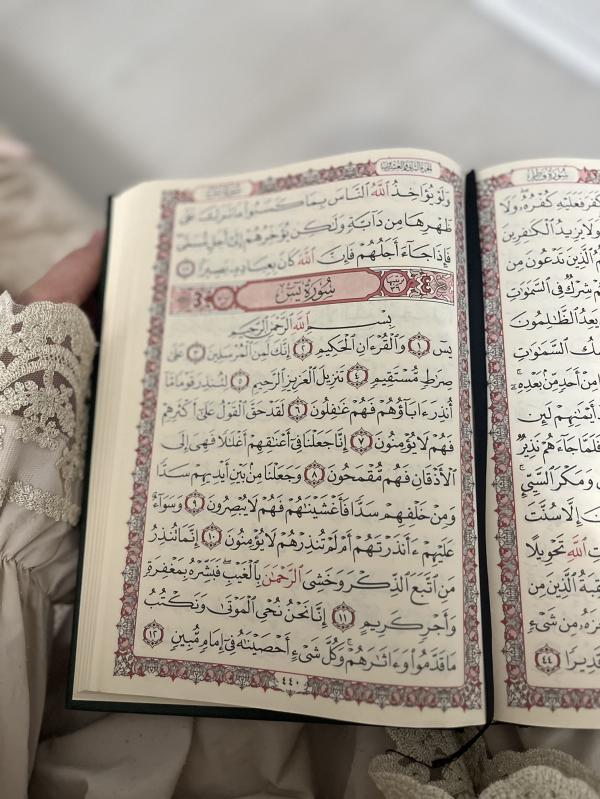 سُورَةُ فَاطِرٍ
كَفَرَ فَعَلَيْهِ كُفْرُهُۥ وَلَا
وَلَا يَزِيدُ ٱلْكَٰفِرِينَ
ٱلَّذِينَ تَدْعُونَ مِن
شِرْكٌ فِى ٱلسَّمَٰوَٰتِ
يَعِدُ ٱلظَّٰلِمُونَ
ٱلسَّمَٰوَٰتِ
مِنْ أَحَدٍ مِّنۢ بَعْدِهِۦٓ
أَيْمَٰنِهِمْ لَئِن
فَلَمَّا جَآءَهُمْ نَذِيرٌ
وَمَكْرَ ٱلسَّيِّئِ
إِلَّا سُنَّتَ
ٱللَّهِ تَحْوِيلًا
ٱلَّذِينَ مِن
مِن شَىْءٍ
قَدِيرًا ٤٤
الجزء الثاني والعشرون
وَلَوْ يُؤَاخِذُ ٱللَّهُ ٱلنَّاسَ بِمَا كَسَبُوا۟ مَا تَرَكَ عَلَىٰ
ظَهْرِهَا مِن دَآبَّةٍ وَلَٰكِن يُؤَخِّرُهُمْ إِلَىٰٓ أَجَلٍ مُّسَمًّى
فَإِذَا جَآءَ أَجَلُهُمْ فَإِنَّ ٱللَّهَ كَانَ بِعِبَادِهِۦ بَصِيرًۢا ٤٥
ترتيبها ٣٦ سُورَةُ يسٓ
بِسْمِ ٱللَّهِ ٱلرَّحْمَٰنِ ٱلرَّحِيمِ
يسٓ ١ وَٱلْقُرْءَانِ ٱلْحَكِيمِ ٢ إِنَّكَ لَمِنَ ٱلْمُرْسَلِينَ ٣ عَلَىٰ
صِرَٰطٍ مُّسْتَقِيمٍ ٤ تَنزِيلَ ٱلْعَزِيزِ ٱلرَّحِيمِ ٥ لِتُنذِرَ قَوْمًا مَّآ
أُنذِرَ ءَابَآؤُهُمْ فَهُمْ غَٰفِلُونَ ٦ لَقَدْ حَقَّ ٱلْقَوْلُ عَلَىٰٓ أَكْثَرِهِمْ
فَهُمْ لَا يُؤْمِنُونَ ٧ إِنَّا جَعَلْنَا فِىٓ أَعْنَٰقِهِمْ أَغْلَٰلًا فَهِىَ إِلَى
ٱلْأَذْقَانِ فَهُم مُّقْمَحُونَ ٨ وَجَعَلْنَا مِنۢ بَيْنِ أَيْدِيهِمْ سَدًّا
وَمِنْ خَلْفِهِمْ سَدًّا فَأَغْشَيْنَٰهُمْ فَهُمْ لَا يُبْصِرُونَ ٩ وَسَوَآءٌ
عَلَيْهِمْ ءَأَنذَرْتَهُمْ أَمْ لَمْ تُنذِرْهُمْ لَا يُؤْمِنُونَ ١٠ إِنَّمَا تُنذِرُ
مَنِ ٱتَّبَعَ ٱلذِّكْرَ وَخَشِىَ ٱلرَّحْمَٰنَ بِٱلْغَيْبِ فَبَشِّرْهُ بِمَغْفِرَةٍ
وَأَجْرٍ كَرِيمٍ ١١ إِنَّا نَحْنُ نُحْىِ ٱلْمَوْتَىٰ وَنَكْتُبُ
مَا قَدَّمُوا۟ وَءَاثَٰرَهُمْ وَكُلَّ شَىْءٍ أَحْصَيْنَٰهُ فِىٓ إِمَامٍ مُّبِينٍ ١٢
٤٤٠